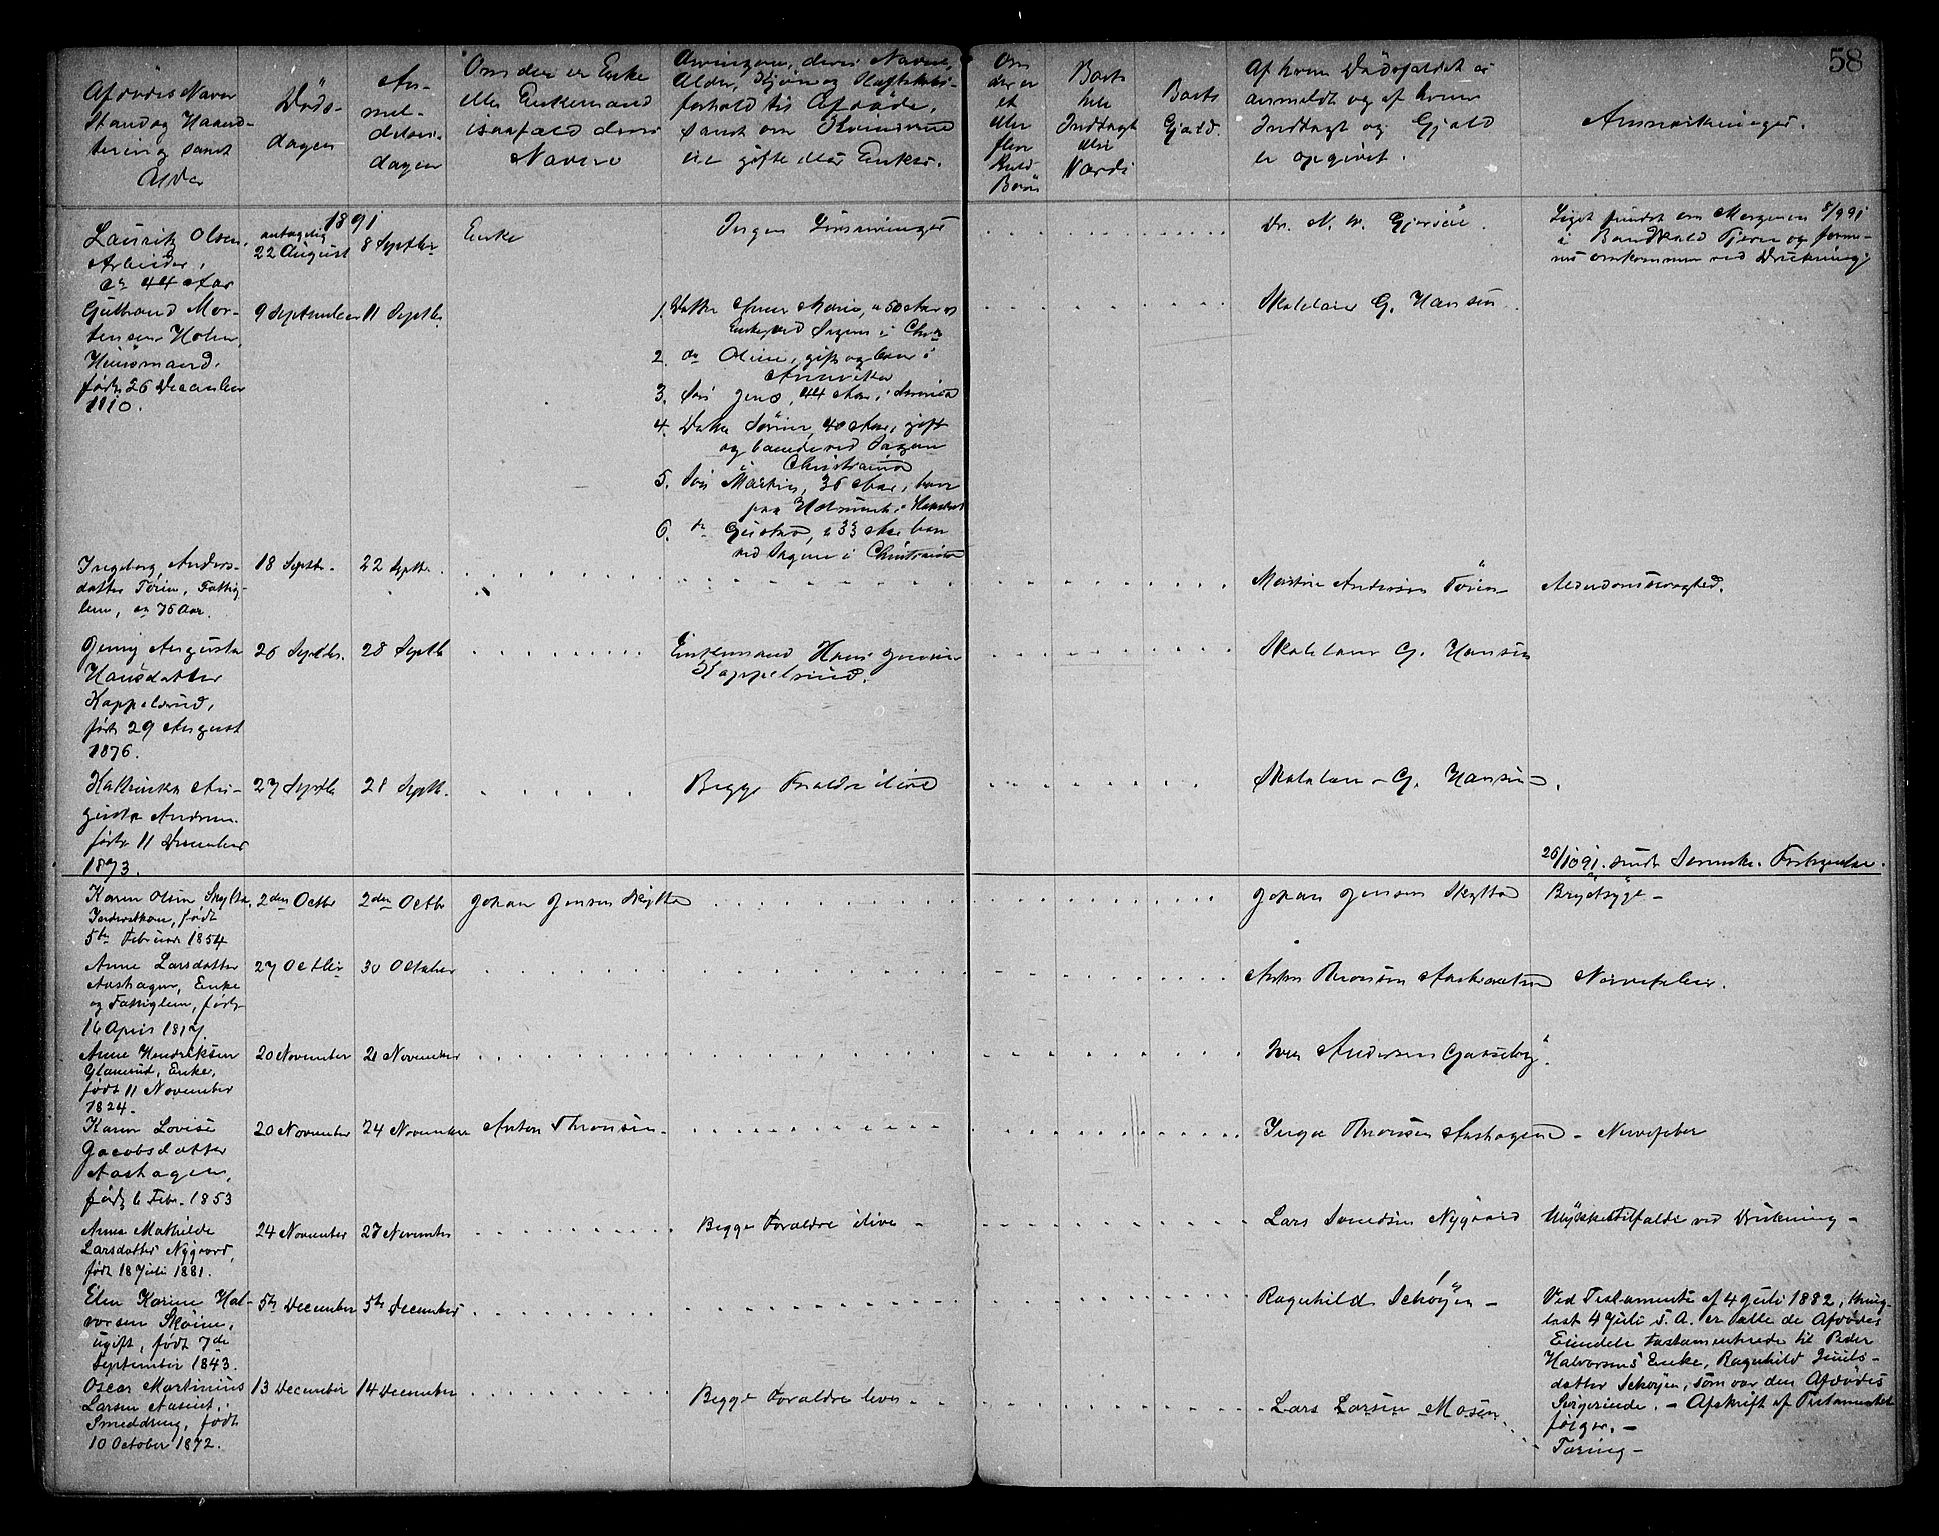 58
Afdødes Navn
Stand og Haand-
tering samt
Alder
Døds-
dagen
An-
mel-
delses-
dagen
Om der er Enke
eller Enkemand
isaafald deres
Navne
Arvingerne, deres Navne,
Alder, Kjøn og Slektskabs-
forhold til Afdøde,
samt om Kvinderne
ere gifte eller Enker.
Om
der er
et
eller
flere
Kuld
Børn
Boets
hele
Indtægt
eller
Værdi
Boets
Gjæld.
Af hvem Dødsfaldet er
anmeldt og af hvem
Indtægt og Gjæld
er opgivet.
Anmærkninger.
1891
Lauritz Olsen,
Arbeider,
ca 44 Aar
antagelig
22 August
8 Septbr
Enke
Ingen Livsarvinger
Dr. N. W. Gjersøe
Liget fundet om Morgenen 8/9 91
i Tjern og forme-
nes omkommen ved Drukning.
Gulbrand Mor-
tensen Holm,
Huusmand.
født 26 December
1810.
9 September
11 Septbr
1. Datter Anne Marie, 50 Aar
Enke, ved Sagene i Chra
2. do Oline, gift og boer i
Amerika
3. Søn Jens, 44 Aar, i Amerika
4. Datter Sørine, 40 Aar, gift
og boende ved Sagene
i Christiania
5. Søn Martin, 36 Aar, boer
paa
6. do Gustav, 33 Aar boer
ved Sagene i Christiania
Skolelærer G. Hansen
Ingeborg Anders-
datter Tøien, Fattig-
lem, ca 75 Aar.
18 Septbr.
22 Septbr.
Martin Andersen Tøien
Alderdomssvaghed.
Jenny Augusta
Hansdatter
Kappelsrud,
født 29 August
1876.
26 Septbr.
28 Septbr
Enkemand Hans Jensen
Kappelsrud.
Skolelærer G. Hansen
Kathinka Au-
gusta Andersen
født 11 December
1873.
27 Septbr
28 Septbr.
Begge Forældre ilive
Skolelærer G. Hansen
26/10 91. sendt Fortegnelse.
Karen Olsen Skytta,
Inderstkone, født
5te Februar 1854
2den Octbr
2den Octbr
Johan Jensen Skytta
Johan Jensen Skytta
Brystsyge -
Anne Larsdatter
Aashagen, Enke
og Fattiglem, født
16 April 1817
27 Octbr
30 October
Anton Thronsen
Nervefeber.
Anne Hendriksen
Glamsrud, Enke,
født 11 November
1824.
20 November
21 November
Iver Andersen
Karen Lovise
Jacobsdatter
Aashagen,
født 6 Febr. 1853
20 November
24 November
Anton Thronsen
Inga Thronsen Aashagen
- Nervefeber
Anna Mathilde
Larsdatter Nygaard,
født 18 Juli 1881.
24 November
27 November
Begge Forældre ilive -
Lars Nygaard
Ulykkestilfælde ved Drukning -
Elen Karine Hal-
vorsen Skøien,
ugift, født 7de
September 1843.
5te December
5te December
Ragnhild Schøyen -
Ved Testamente af 4 Juli 1882, thing-
læst 4 Juli s. A. er alle de Afdødes
Eiendele testamenterede til Peder
Halvorsens Enke, Ragnhild Juuls-
datter Schøyen, som var den Afdødes
Svigerinde. - Afskrift af Testamentet
følger. -
Oscar Martinius
Larsen Aasrud,
Smeddreng, født
10 October 1872.
13 December
14 December
Begge Forældre lever -
Lars Larsen Mosen
Tæring -